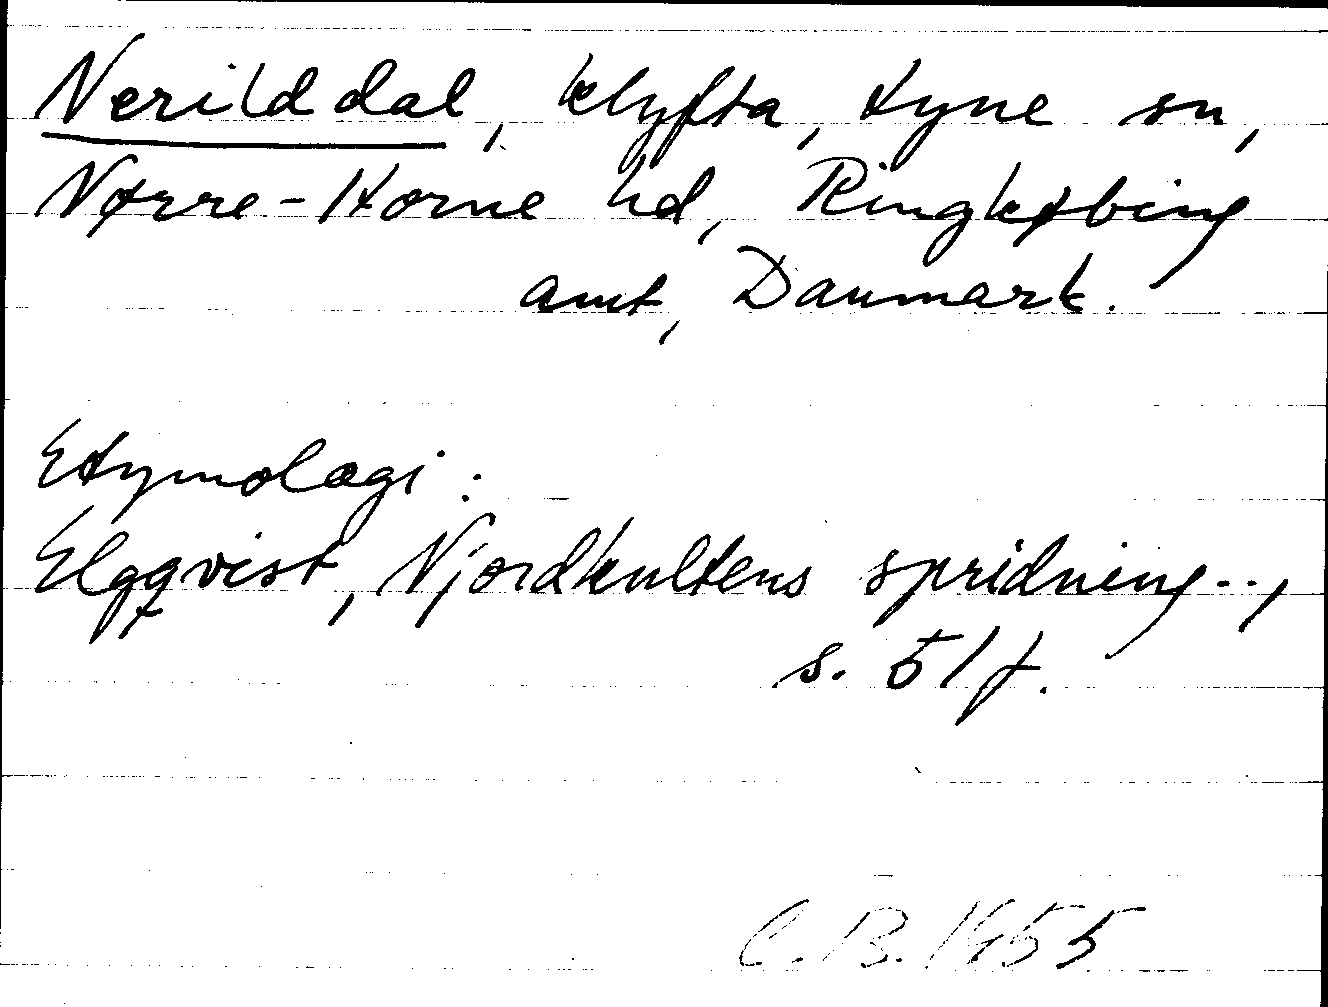 Nerilddal, klyfta, Lyne sn,
Nørre-Horne hd, Ringkøbing
amt, Danmark.
Etymologi:
Elgqvist, Njordkultens spridning..,
s. 51 f.
C.B. 1955